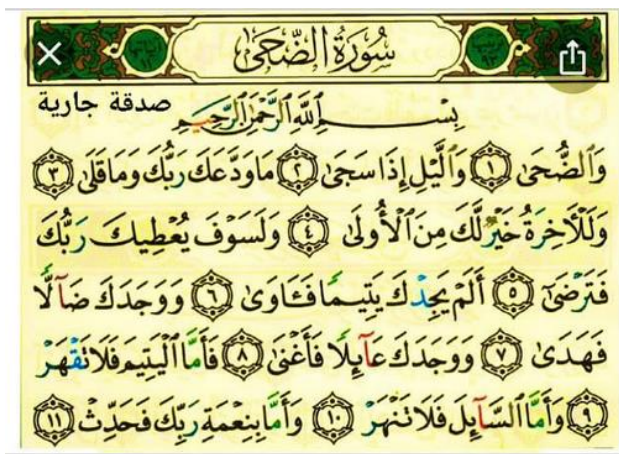 سُورَةُ الضُّحَىٰ
صدقة جارية
بِسْمِ ٱللَّهِ ٱلرَّحْمَٰنِ ٱلرَّحِيمِ
وَٱلضُّحَىٰ ١ وَٱلَّيْلِ إِذَا سَجَىٰ ٢ مَا وَدَّعَكَ رَبُّكَ وَمَا قَلَىٰ ٣
وَلَلْءَاخِرَةُ خَيْرٌ لَّكَ مِنَ ٱلْأُولَىٰ ٤ وَلَسَوْفَ يُعْطِيكَ رَبُّكَ
فَتَرْضَىٰٓ ٥ أَلَمْ يَجِدْكَ يَتِيمًا فَـَٔاوَىٰ ٦ وَوَجَدَكَ ضَآلًّا
فَهَدَىٰ ٧ وَوَجَدَكَ عَآئِلًا فَأَغْنَىٰ ٨ فَأَمَّا ٱلْيَتِيمَ فَلَا تَقْهَرْ
٩ وَأَمَّا ٱلسَّآئِلَ فَلَا تَنْهَرْ ١٠ وَأَمَّا بِنِعْمَةِ رَبِّكَ فَحَدِّثْ ١١